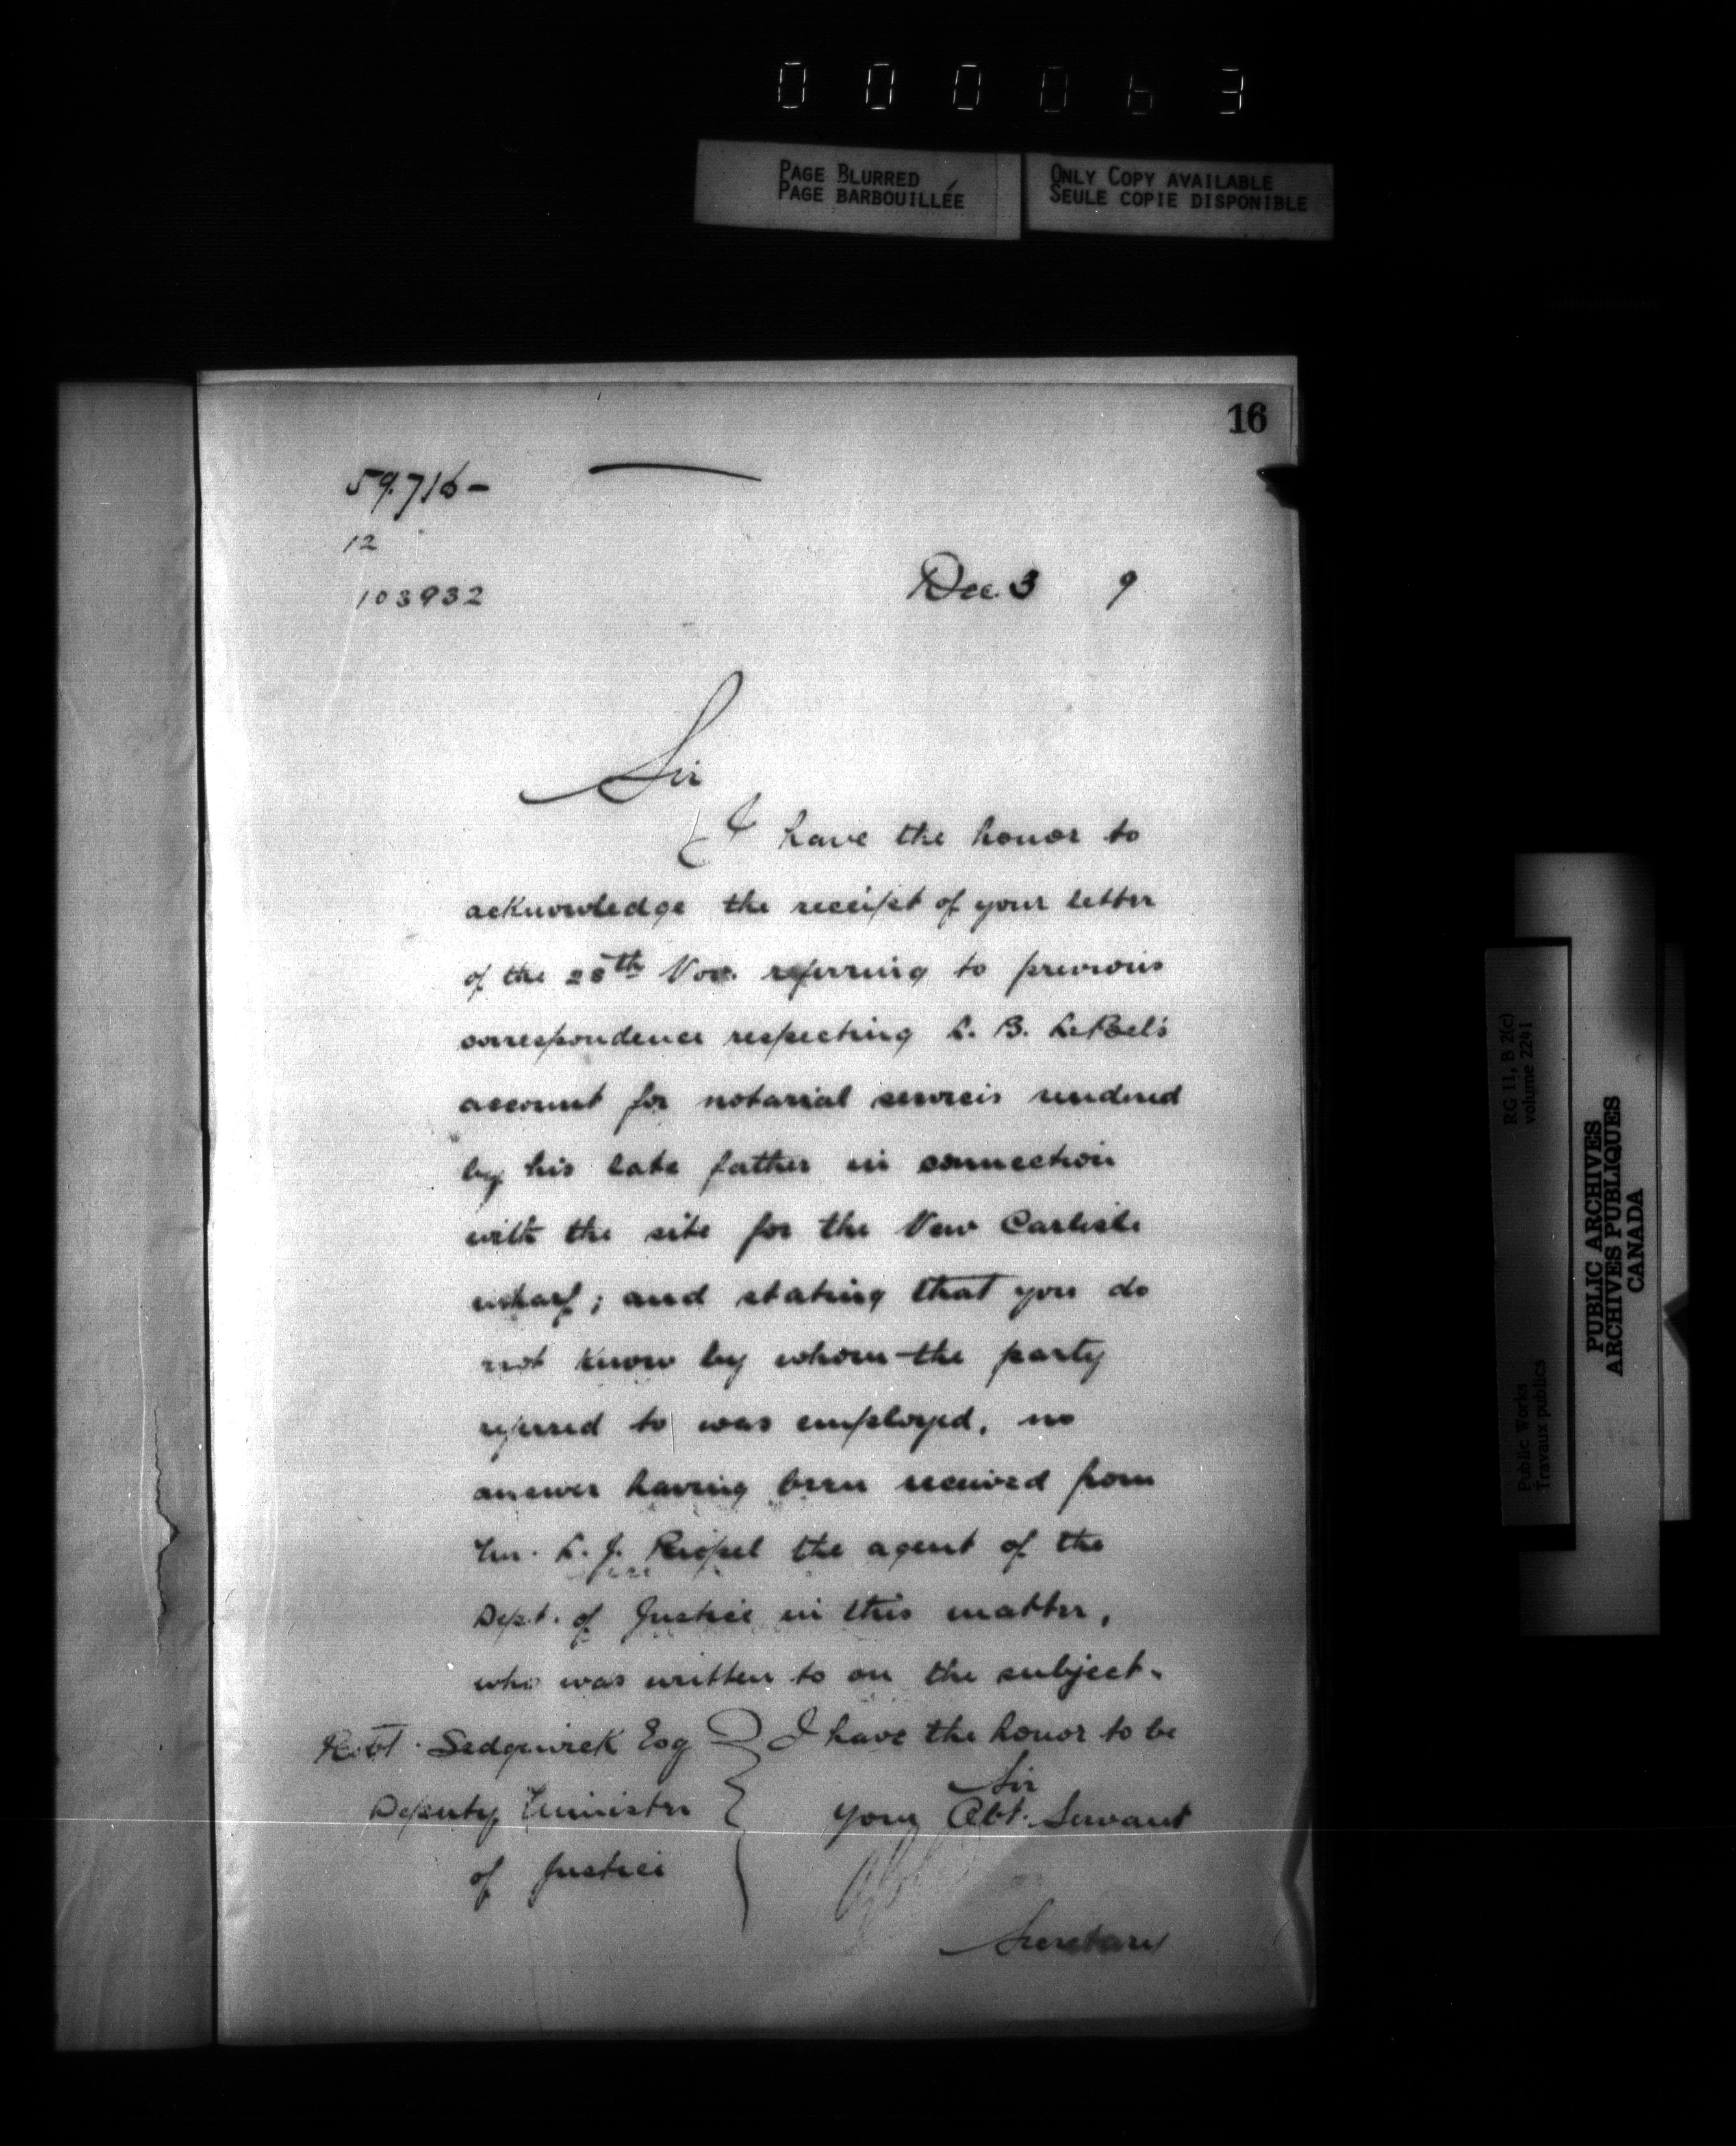 000063
PAGE BLURRED
PAGE BARBOUILLÉE
ONLY COPY AVAILABLE
SEULE COPIE DISPONIBLE
16
59.716-
12
103932
Dec. 3 9
Sir
I have the honor to
acknowledge the receipt of your letter
of the 28th Nov. referring to previous
correspondence respecting L. B. LeBel's
account for notarial services rendered
by his late father in connection
with the site for the New Carlisle
wharf; and stating that you do
not know by whom the party
referred to was employed, no
answer having been received from
Mr. L. J. Riopel the agent of the
Dept. of Justice in this matter,
who was written to on the subject.
I have the honor to be
Sir
Your Obt. Servant
Secretary
Robt. Sedgewick Esq
Deputy Minister
of Justice
RG 11, B 2(c)
volume 2241
Public Works
Travaux publics
PUBLIC ARCHIVES
ARCHIVES PUBLIQUES
CANADA